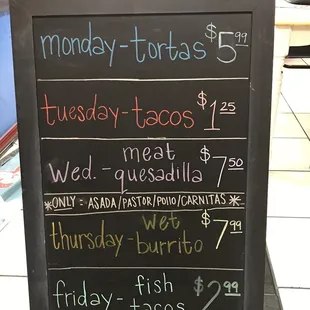 monday - tortas $5.99
tuesday - tacos $1.25
Wed. - meat quesadilla $7.50
*ONLY = ASADA/PASTOR/POLLO/CARNITAS*
thursday - wet burrito $7.99
friday - fish tacos $2.99